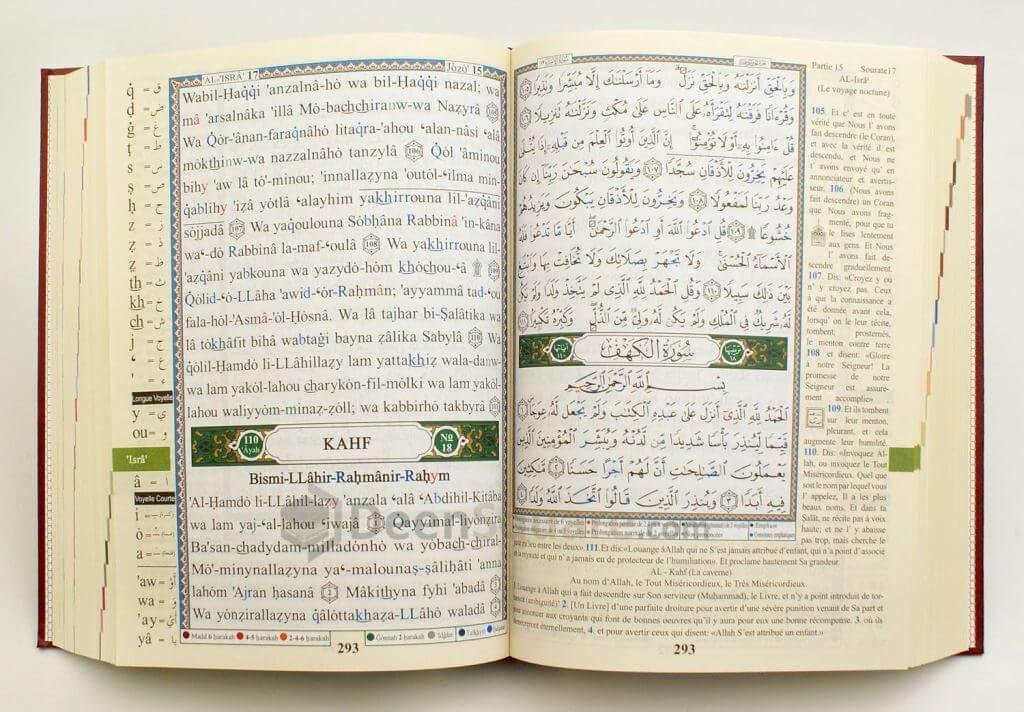 'AL-'ISRÂ' 17
Jòzò' 15
Wabil-Ḥaqqi 'anzalnâ-hò wa bil-Ḥaqqi nazal; wa
mâ 'arsalnâka 'illâ Mò-bachchiranw-wa Naẓyrâ 105
Wa Qòr-'ânan-faraqnâhò litaqra-'ahou ʻalan-nâsi ʻalâ
mòkthinw-wa nazzalnâhò tanzylâ 106 Qòl 'âminou
bihy 'aw lâ tò'-minou; 'innallaẓyna 'outòl-ʻilma min
qablihy 'iẓâ yòtlâ ʻalayhim yakhirrouna lil-'aẓqâni
sòjjadâ 107 Wa yaqoulouna Sòbḥâna Rabbinâ 'in-kâna
waʻ-dò Rabbinâ la-maf-ʻoulâ 108 Wa yakhirrouna lil-
'aẓqâni yabkouna wa yazydò-hòm khòchou-ʻâ 109
Qòlid-ʻò-LLâha 'awid-ʻòr-Raḥmân; 'ayyammâ tad-ʻou
fala-hòl-'Asmâ-'òl-Ḥòsnâ. Wa lâ tajhar bi-Ṣalâtika wa
lâ tòkhâfit bihâ wabtaġi bayna ẓâlika Sabylâ 110 Wa
qòlil-Ḥamdò li-LLâhillaẓy lam yattakhiẓ wala-danw-
wa lam yakòl-lahou charykòn-fil-mòlki wa lam yakòl-
lahou waliyyòm-minaẓ-ẓòll; wa kabbirhò takbyrâ 111
110 'Âyah
KAHF
Nº 18
Bismi-LLâhir-Raḥmânir-Raḥym
'Al-Ḥamdò li-LLâhil-laẓy 'anzala ʻalâ ʻAbdihil-Kitâba
wa lam yaj-ʻal-lahou ʻiwajâ 1 Qayyimal-liyònẓira
Ba'san-chadydam-milladònhò wa yòbach-chiral-
Mò'-minynallaẓyna yaʻ-malounaṣ-ṣâliḥâti 'anna
lahòm 'Ajran ḥasanâ 2 Mâkithyna fyhi 'abadâ 3
Wa yònẓirallaẓyna qâlòttakhaẓa-LLâhò waladâ 4
Madd 6 ḥarakah
4-5 ḥarakah
2-4-6 ḥarakah
Ġònnah 2 ḥarakah
'Idġâm
Tafkhym
293
q = ق
ḍ = ض
ġ = غ
ṭ = ط
s = س
ṣ = ص
ḥ = ح
z = ز
ẓ = ذ
ẓ = ظ
th = ث
kh = خ
ch = ش
j = ج
ʻ = ع
' = ء
Longue Voyelle
y = ي
ou = و
'Isrâ'
â = ا
Voyelle Courte
i =
ò =
a =
'aw = أَو
wa = وَ
'ay = أَي
yâ = يا
وَبِالْحَقِّ أَنزَلْنَٰهُ وَبِالْحَقِّ نَزَلَ ۗ وَمَآ أَرْسَلْنَٰكَ إِلَّا مُبَشِّرًا وَنَذِيرًا ١٠٥
وَقُرْءَانًا فَرَقْنَٰهُ لِتَقْرَأَهُۥ عَلَى النَّاسِ عَلَىٰ مُكْثٍ وَنَزَّلْنَٰهُ تَنزِيلًا ١٠٦
قُلْ ءَامِنُوا۟ بِهِۦٓ أَوْ لَا تُؤْمِنُوٓا۟ ۚ إِنَّ الَّذِينَ أُوتُوا۟ الْعِلْمَ مِن قَبْلِهِۦٓ إِذَا يُتْلَىٰ
عَلَيْهِمْ يَخِرُّونَ لِلْأَذْقَانِ سُجَّدًا ١٠٧ وَيَقُولُونَ سُبْحَٰنَ رَبِّنَآ إِن كَانَ
وَعْدُ رَبِّنَا لَمَفْعُولًا ١٠٨ وَيَخِرُّونَ لِلْأَذْقَانِ يَبْكُونَ وَيَزِيدُهُمْ
خُشُوعًا ۩ ١٠٩ قُلِ ادْعُوا۟ اللَّهَ أَوِ ادْعُوا۟ الرَّحْمَٰنَ ۖ أَيًّا مَّا تَدْعُوا۟ فَلَهُ
الْأَسْمَآءُ الْحُسْنَىٰ ۚ وَلَا تَجْهَرْ بِصَلَاتِكَ وَلَا تُخَافِتْ بِهَا وَابْتَغِ
بَيْنَ ذَٰلِكَ سَبِيلًا ١١٠ وَقُلِ الْحَمْدُ لِلَّهِ الَّذِى لَمْ يَتَّخِذْ وَلَدًا وَلَمْ يَكُن
لَّهُۥ شَرِيكٌ فِى الْمُلْكِ وَلَمْ يَكُن لَّهُۥ وَلِىٌّ مِّنَ الذُّلِّ ۖ وَكَبِّرْهُ تَكْبِيرًا ١١١
ترتيبها ١٨
سُورَةُ الْكَهْفِ
آياتها ١١٠
بِسْمِ اللَّهِ الرَّحْمَٰنِ الرَّحِيمِ
الْحَمْدُ لِلَّهِ الَّذِىٓ أَنزَلَ عَلَىٰ عَبْدِهِ الْكِتَٰبَ وَلَمْ يَجْعَل لَّهُۥ عِوَجَا ١
قَيِّمًا لِّيُنذِرَ بَأْسًا شَدِيدًا مِّن لَّدُنْهُ وَيُبَشِّرَ الْمُؤْمِنِينَ الَّذِينَ
يَعْمَلُونَ الصَّٰلِحَٰتِ أَنَّ لَهُمْ أَجْرًا حَسَنًا ٢ مَّٰكِثِينَ
فِيهِ أَبَدًا ٣ وَيُنذِرَ الَّذِينَ قَالُوا۟ اتَّخَذَ اللَّهُ وَلَدًا ٤
Partie 15 Sourate17
AL-Isrâ'
(Le voyage noctune)
105. Et c' est en toute
vérité que Nous l' avons
fait descendre (le Coran),
et avec la vérité il est
descendu, et Nous ne
t' avons envoyé qu' en
annonciateur et avertis-
seur. 106. (Nous avons
fait descendre) un Coran
que Nous avons frag-
menté, pour que tu
le lises lentement
aux gens. Et Nous
l' avons fait de-
scendre graduellement.
107. Dis: «Croyez y ou
n' y croyez pas. Ceux
à qui la connaissance a
été donnée avant cela,
lorsqu' on le leur récite,
tombent, prosternés,
le menton contre terre
108 et disent: «Gloire
à notre Seigneur! La
promesse de notre
Seigneur est assuré-
ment accomplie»
109. Et ils tombent
sur leur menton,
pleurant, et cela
augmente leur humilité.
110. Dis: «Invoquez Al-
lah, ou invoquez le Tout
Miséricordieux. Quel que
soit le nom par lequel vous
l' appelez, Il a les plus
beaux noms. Et dans ta
Ṣalât, ne récite pas à voix
haute; et ne l' y abaisse
pas trop, mais cherche le
juste milieu entre les deux». 111. Et dis: «Louange à Allah qui ne S'est jamais attribué d'enfant, qui n'a point d'associé
en la royauté et qui n' a jamais eu de protecteur de l'humiliation». Et proclame hautement Sa grandeur.
AL - Kahf (La caverne)
Au nom d'Allah, le Tout Miséricordieux, le Très Miséricordieux.
1. Louange à Allah qui a fait descendre sur Son serviteur (Muhammad), le Livre, et n'y a point introduit de tor-
tuosité (ambiguïté)! 2. [Un Livre] d'une parfaite droiture pour avertir d'une sévère punition venant de Sa part et
pour annoncer aux croyants qui font de bonnes oeuvres qu'il y aura pour eux une bonne récompense. 3. où ils
demeureront éternellement, 4. et pour avertir ceux qui disent: «Allah S'est attribué un enfant.»
293